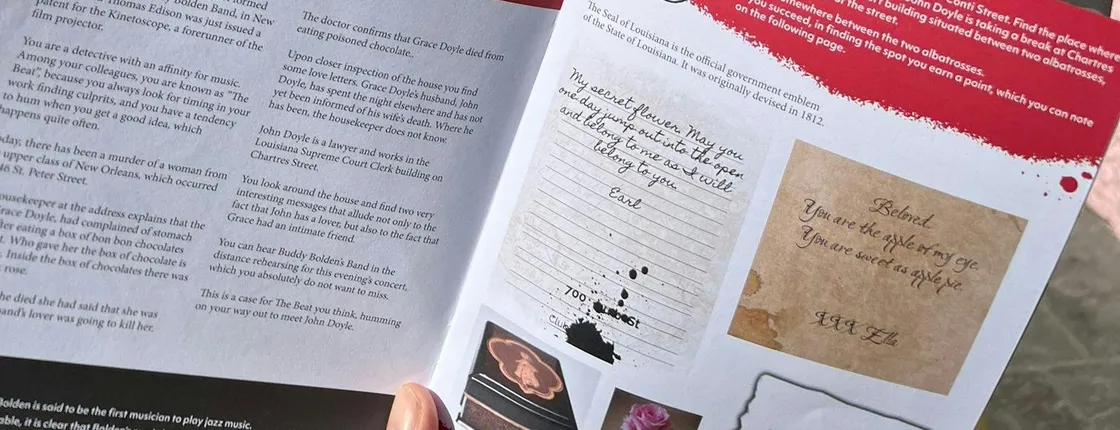 formed
Bolden Band, in New
Thomas Edison was just issued a
patent for the Kinetoscope, a forerunner of the
film projector.
You are a detective with an affinity for music.
Among your colleagues, you are known as "The
Beat", because you always look for timing in your
work finding culprits, and you have a tendency
to hum when you get a good idea, which
happens quite often.
day, there has been a murder of a woman from
upper class of New Orleans, which occurred
St. Peter Street.
ousekeeper at the address explains that the
Grace Doyle, had complained of stomach
eating a box of bon bon chocolates
Who gave her the box of chocolate is
Inside the box of chocolates there was
rose.
he died she had said that she was
and's lover was going to kill her.
The doctor confirms that Grace Doyle died from
eating poisoned chocolate..
Upon closer inspection of the house you find
some love letters. Grace Doyle's husband, John
Doyle, has spent the night elsewhere and has not
yet been informed of his wife's death. Where he
has been, the housekeeper does not know.
John Doyle is a lawyer and works in the
Louisiana Supreme Court Clerk building on
Chartres Street.
You look around the house and find two very
interesting messages that allude not only to the
fact that John has a lover, but also to the fact that
Grace had an intimate friend.
You can hear Buddy Bolden's Band in the
distance rehearsing for this evening's concert,
which you absolutely do not want to miss.
This is a case for The Beat you think, humming
on your way out to meet John Doyle.
Bolden is said to be the first musician to play jazz music.
able, it is clear that
The Seal of Louisiana is the official government emblem
of the State of Louisiana. It was originally devised in 1812.
My secret flower. May you
one day jump out into the open
and belong to me as I will
belong to you
Earl
700
St
Club
Conti Street. Find the place where
John Doyle is taking a break at Chartres
building situated between two albatrosses,
of the street.
somewhere between the two albatrosses.
you succeed, in finding the spot you earn a point, which you can note
on the following page.
Beloved
You are the apple of my eye.
You are sweet as apple pie.
XXX Ella